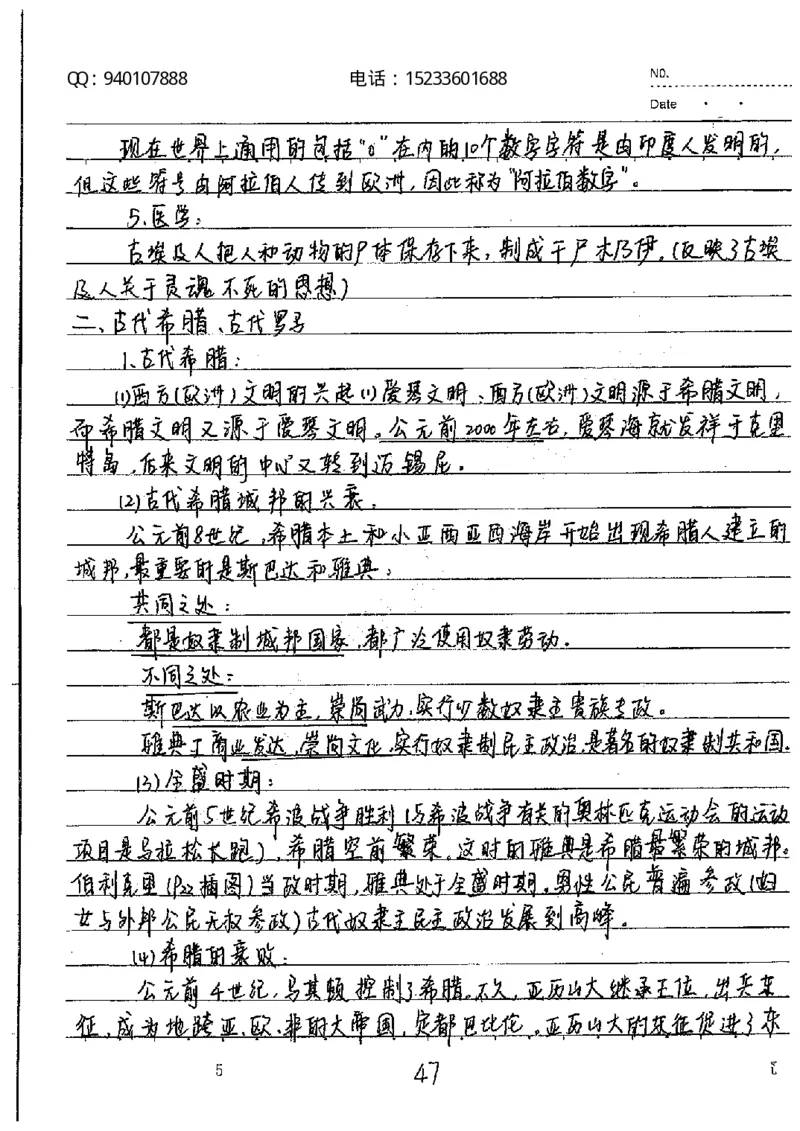 QQ：940107888 电话：15233601688 NO.
Date · ·
现在世界上通用的包括"0"在内的10个数字字符是由印度人发明的，
但这些符号由阿拉伯人传到欧洲，因此称为"阿拉伯数字"。
5.医学：
古埃及人把人和动物的尸体保存下来，制成干尸木乃伊。(反映了古埃
及人关于灵魂不死的思想)
二、古代希腊、古代罗马
1.古代希腊：
(1)西方(欧洲)文明的兴起(1)爱琴文明、西方(欧洲)文明源于希腊文明，
而希腊文明又源于爱琴文明。公元前2000年左右，爱琴海就发祥于克里
特岛，后来文明的中心又转到迈锡尼。
(2)古代希腊城邦的兴衰，
公元前8世纪，希腊本土和小亚西亚西海岸开始出现希腊人建立的
城邦，最重要的是斯巴达和雅典；
共同之处：
都是奴隶制城邦国家，都广泛使用奴隶劳动.
不同之处：
斯巴达以农业为主，崇尚武力，实行少数奴隶主贵族专政。
雅典工商业发达，崇尚文化，实行奴隶制民主政治，是著名的奴隶制共和国.
(3)全盛时期：
公元前5世纪希波战争胜利(与希波战争有关的奥林匹克运动会的运动
项目是马拉松长跑)，希腊空前繁荣，这时的雅典是希腊最繁荣的城邦。
伯利克里(P22插图)当政时期，雅典处于全盛时期。男性公民普遍参政(妇
女与外邦公民无权参政)古代奴隶主民主政治发展到高峰。
(4)希腊的衰败：
公元前4世纪，马其顿控制了希腊。不久，亚历山大继承王位，出兵东
征，成为地跨亚、欧、非的大帝国，定都巴比伦。亚历山大的东征促进了东
5 47